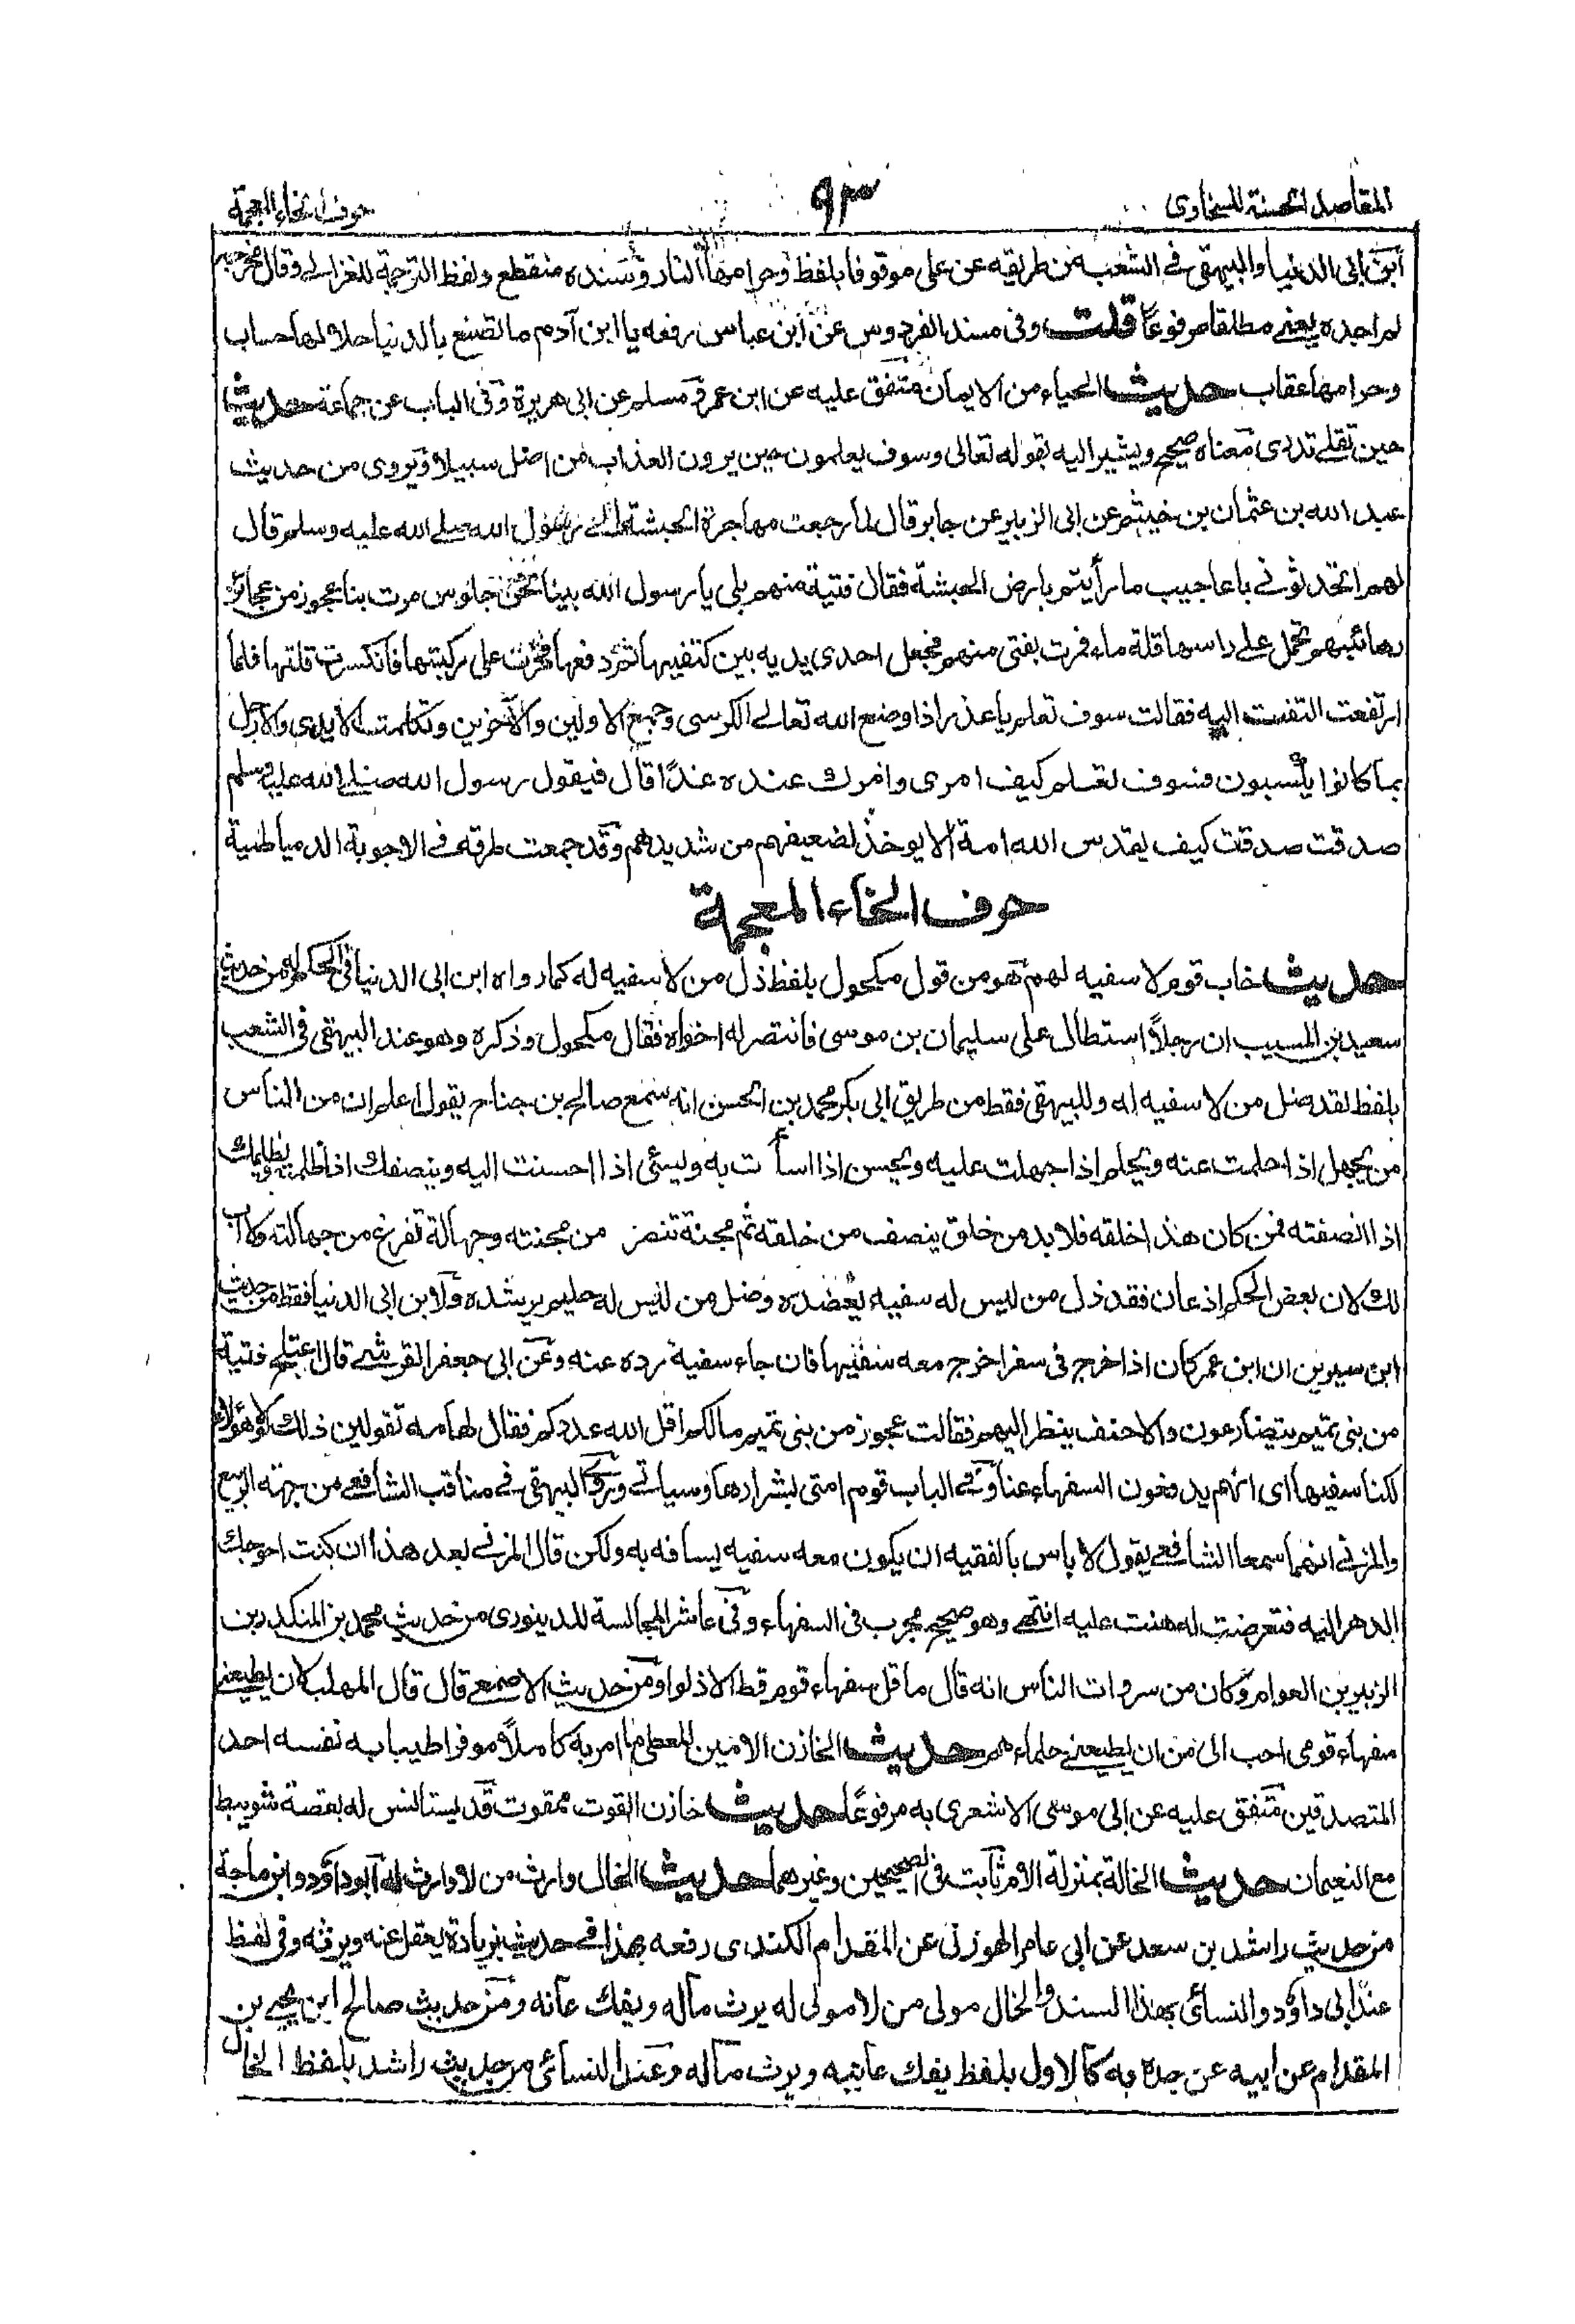 المقاصد الحسنة للسخاوى
٩٣
حرف الخاء المعجمة
ابن ابى الدنيا والبيهقى فى الشعب من طريقه عن على موقوفا بلفظ وحرامها النار وسنده منقطع ولفظ الترجمة للغزالى وقال مخرجه
لم اجده يعنى مطلقا مرفوعا قلت وفى مسند الفردوس عن ابن عباس رفعه يا ابن آدم ما تصنع بالدنيا حلالها حساب
وحرامها عقاب حديث الحياء من الايمان متفق عليه عن ابن عمر ومسلم عن ابى هريرة وفى الباب عن جماعة حديث
حين تقلى تدرى معناه صحيح ويشير اليه بقوله تعالى وسوف يعلمون حين يرون العذاب من اضل سبيلا ويروى من حديث
عبد الله بن عثمان بن خيثم عن ابى الزبير عن جابر قال لما رجعت مهاجرة الحبشة الى رسول الله صلى الله عليه وسلم قال
لهم اتحدثونى باعاجيب ما رأيتم بارض الحبشة فقال فتية منهم بلى يا رسول الله بينا نحن جلوس مرت بنا عجوز من عجائز
رهائبهم تحمل على راسها قلة ماء فمرت بفتى منهم فجعل احدى يديه بين كتفيها ثم دفعها فخرت على ركبتها فانكسرت قلتها فلما
ارتفعت التفتت اليه فقالت سوف تعلم يا غدر اذا وضع الله تعالى الكرسى وجمع الاولين والآخرين وتكلمت الايدى والارجل
بما كانوا يكسبون فسوف تعلم كيف امرى وامرك عنده غدًا قال فيقول رسول الله صلى الله عليه وسلم
صدقت صدقت كيف يقدس الله امة لا يوخذ لضعيفهم من شديدهم وقد جمعت طرقه فى الاجوبة الدمياطية
حرف الخاء المعجمة
حديث خاب قوم لا سفيه لهم هو من قول مكحول بلفظ ذل من لا سفيه له كما رواه ابن ابى الدنيا فى الحكم له من حديث
سعيد بن المسيب ان رجلاً استطال على سليمان بن موسى فانتصر له اخواه فقال مكحول وذكره وهو عند البيهقى فى الشعب
بلفظ لقد ضل من لا سفيه له وللبيهقى فقط من طريق ابى بكر محمد بن الحسن انه سمع صالح بن جناح يقول اعلم ان من الناس
من يجهل اذا حلمت عنه ويحلم اذا جهلت عليه ويحسن اذا اسأت به ويسئ اذا احسنت اليه وينصفك اذا ظلمته ويظلمك
اذا انصفته فمن كان هذا خلقه فلا بد من خلق ينصف من خلقه ثم مجنة تنصر من مجنته وجهالة تفرغ من جهالته ولا اب
لك لان بعض الحكم اذعان فقد ذل من ليس له سفيه يعضده وضل من ليس له حليم يرشده ولابن ابى الدنيا فقط من حديث
ابن سيرين ان ابن عمر كان اذا خرج فى سفر اخرج معه سفيها فان جاء سفيه رده عنه وعن ابى جعفر القرشى قال اعتلج فتية
من بنى تميم يتصارعون والاحنف ينظر اليهم فقالت عجوز من بنى تميم مالكم اقل الله عددكم فقال لها مه تقولين ذلك لولا هؤلاء
لكنا سفيها اى انهم يدفعون السفهاء عنا وفى الباب قوم امتى بشرارها وسياتى وروى البيهقى فى مناقب الشافعى من جهة الربيع
والمزنى انهما سمعا الشافعى يقول لا باس بالفقيه ان يكون معه سفيه يسافه به ولكن قال المزنى بعد هذا ان كنت احوجك
الدهر اليه فتعرضت له هنت عليه انتهى وهو صحيح مجرب فى السفهاء وفى عاشر المجالسة للدينورى من حديث محمد بن المنكدر بن
الزبير بن العوام وكان من سروات الناس انه قال ما قل سفهاء قوم قط الا ذلوا ومن حديث الاصمعى قال قال المهلب لان يطيعنى
سفهاء قومى احب الى من ان يطيعنى حلماءهم حديث الخازن الامين المعطى ما امر به كاملاً موفرا طيبا به نفسه احد
المتصدقين متفق عليه عن ابى موسى الاشعرى به مرفوعًا حديث خازن القوت ممقوت قد يستانس له بقصة سُويبط
مع النعيمان حديث الخالة بمنزلة الام ثابت فى الصحيحين وغيرهما حديث الخال وارث من لا وارث له ابو داؤد وابن ماجة
من حديث راشد بن سعد عن ابى عامر الهوزنى عن المقدام الكندى رفعه بهذا فى حديث بزيادة يعقل عنه ويرثه وفى لفظ
عند ابى داؤد والنسائى بهذا السند والخال مولى من لا مولى له يرث ماله ويفك عانه ومن حديث صالح ابن يحيى بن
المقدام عن ابيه عن جده به كالاول بلفظ يفك عانيه ويرث ماله وعند النسائى من حديث راشد بلفظ الخال